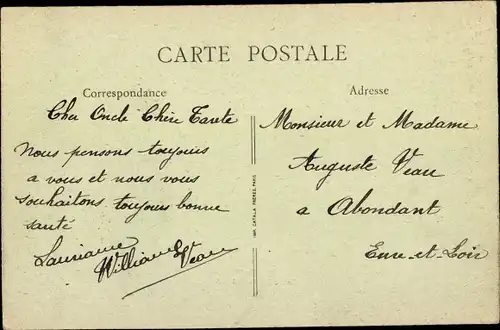 CARTE POSTALE
Correspondance
Cher Oncle Chère Tante
Nous pensons toujours
a vous et nous vous
souhaitons toujours bonne
santé
William Veau
Adresse
Monsieur et Madame
Auguste Veau
a Abondant
Eure-et-Loir
IMP. CATALA FRÈRES, PARIS